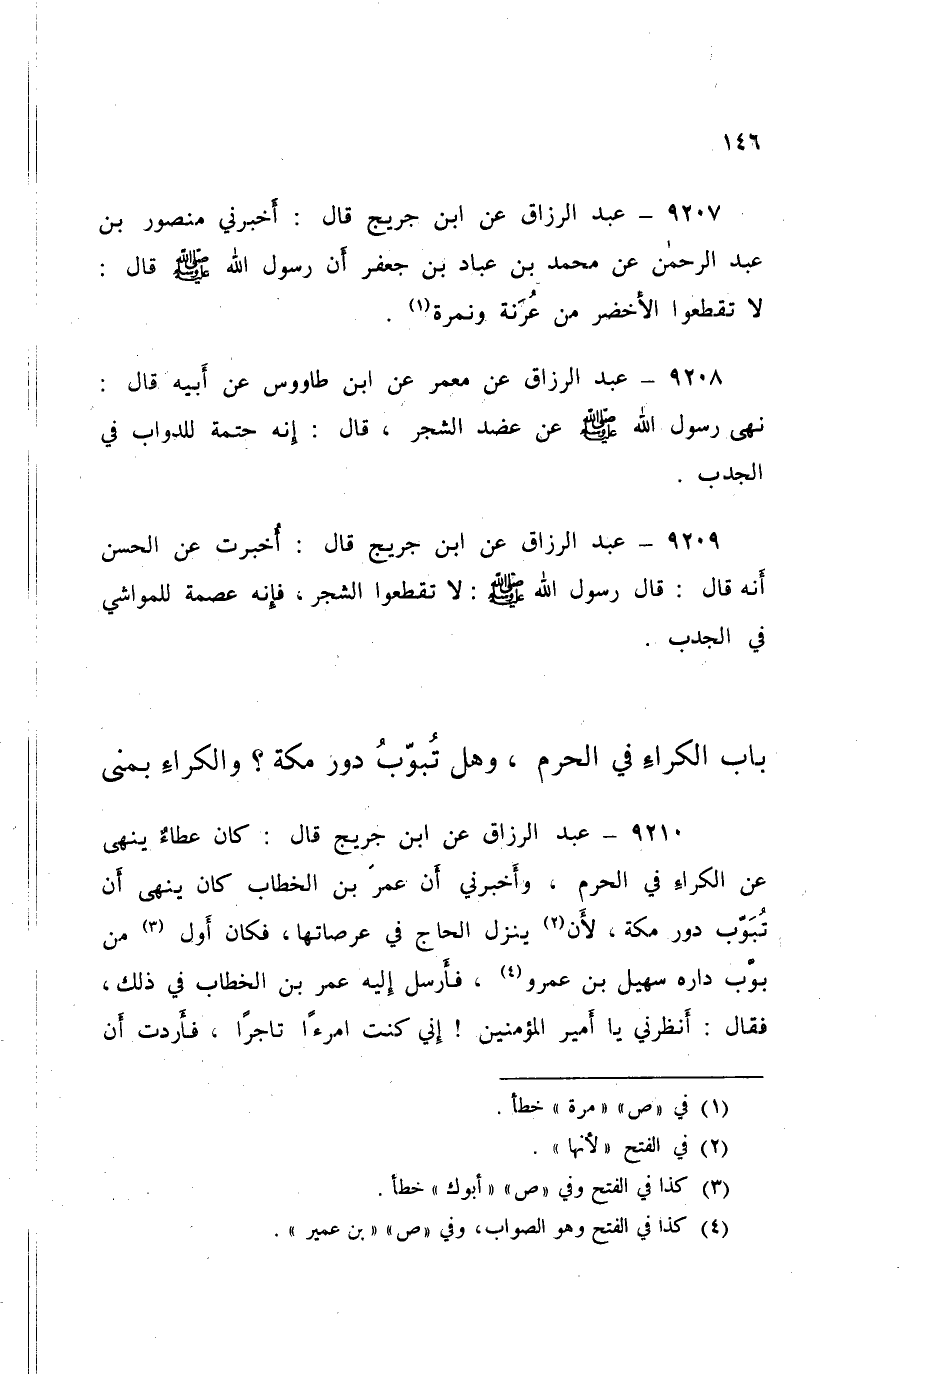 ١٤٦
٩٢٠٧ – عبد الرزاق عن ابن جريج قال : أخبرني منصور بن
عبد الرحمٰن عن محمد بن عباد بن جعفر أن رسول الله ﷺ قال :
لا تقطعوا الأخضر من عُرَنة ونمرة(١) .
٩٢٠٨ – عبد الرزاق عن معمر عن ابن طاووس عن أبيه قال :
نهى رسول الله ﷺ عن عضد الشجر ، قال : إنه حتمة للدواب في
الجدب .
٩٢٠٩ – عبد الرزاق عن ابن جريج قال : أُخبرت عن الحسن
أنه قال : قال رسول الله ﷺ : لا تقطعوا الشجر ، فإنه عصمة للمواشي
في الجدب .
باب الكراءِ في الحرم ، وهل تُبوّبُ دور مكة ؟ والكراءِ بمنى
٩٢١٠ – عبد الرزاق عن ابن جريج قال : كان عطاءٌ ينهى
عن الكراءِ في الحرم ، وأخبرني أن عمرَ بن الخطاب كان ينهى أن
تُبَوّب دور مكة ، لأَن(٢) ينزل الحاج في عرصاتها، فكان أول (٣) من
بوّب داره سهيل بن عمرو(٤) ، فأرسل إليه عمر بن الخطاب في ذلك ،
فقال : أنظرني يا أمير المؤمنين ! إني كنت امرءًا تاجرًا ، فأردت أن
(١) في «ص» «مرة » خطأ .
(٢) في الفتح « لأنها » .
(٣) كذا في الفتح وفي «ص» « أبوك » خطأ .
(٤) كذا في الفتح وهو الصواب، وفي «ص» « بن عمير » .